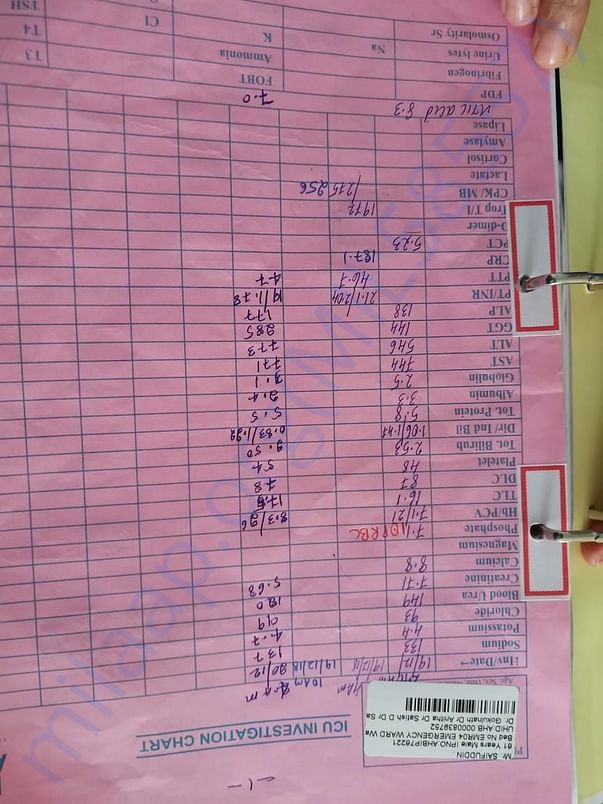 - 1 -
ICU INVESTIGATION CHART
Mr. SAIFUDDIN
61 Years Male IPNO AHBIP76221
Bed No EMR04 EMERGENCY WARD Wa
UHID AHB 0000839752
Dr. Gokulnath Dr Anitha Dr Satish D Dr Sa
Age, Sex,
10 Am
Inv/Date→ 19/12 19/12/18 19/12/18 20/12
Sodium 133 137
Potassium 4.4 4.7
Chloride 93
Blood Urea 149 120
Creatinine 7.71 5.68
Calcium 8.8
Magnesium
Phosphate 7.1
HB/PCV 7.1/21 8.3/26
TLC 16.1
DLC 87 78
Platelet 48 54
Tot. Bilirub 2.53 2.50
Dir/ Ind Bil 1.06/1.47
Tot. Protein 5.8 5.5
Albumin 3.3 2.4
Globulin 2.5 3.1
AST 744 771
ALT 546 773
GGT 144 285
ALP 138 177
PT/INR 19/1.78
PTT 46.7 47
CRP 187.1
PCT 5.23
D-dimer
Trop T/I 1972
CPK/ MB 1215 256
Lactate
Cortisol
Amylase
Lipase
uric acid 8.3 7.0
FDP FOBT
Fibrinogen Ammonia T3
Urine lytes Na K Cl T4
Osmolarity Sr TSH
milaap.org